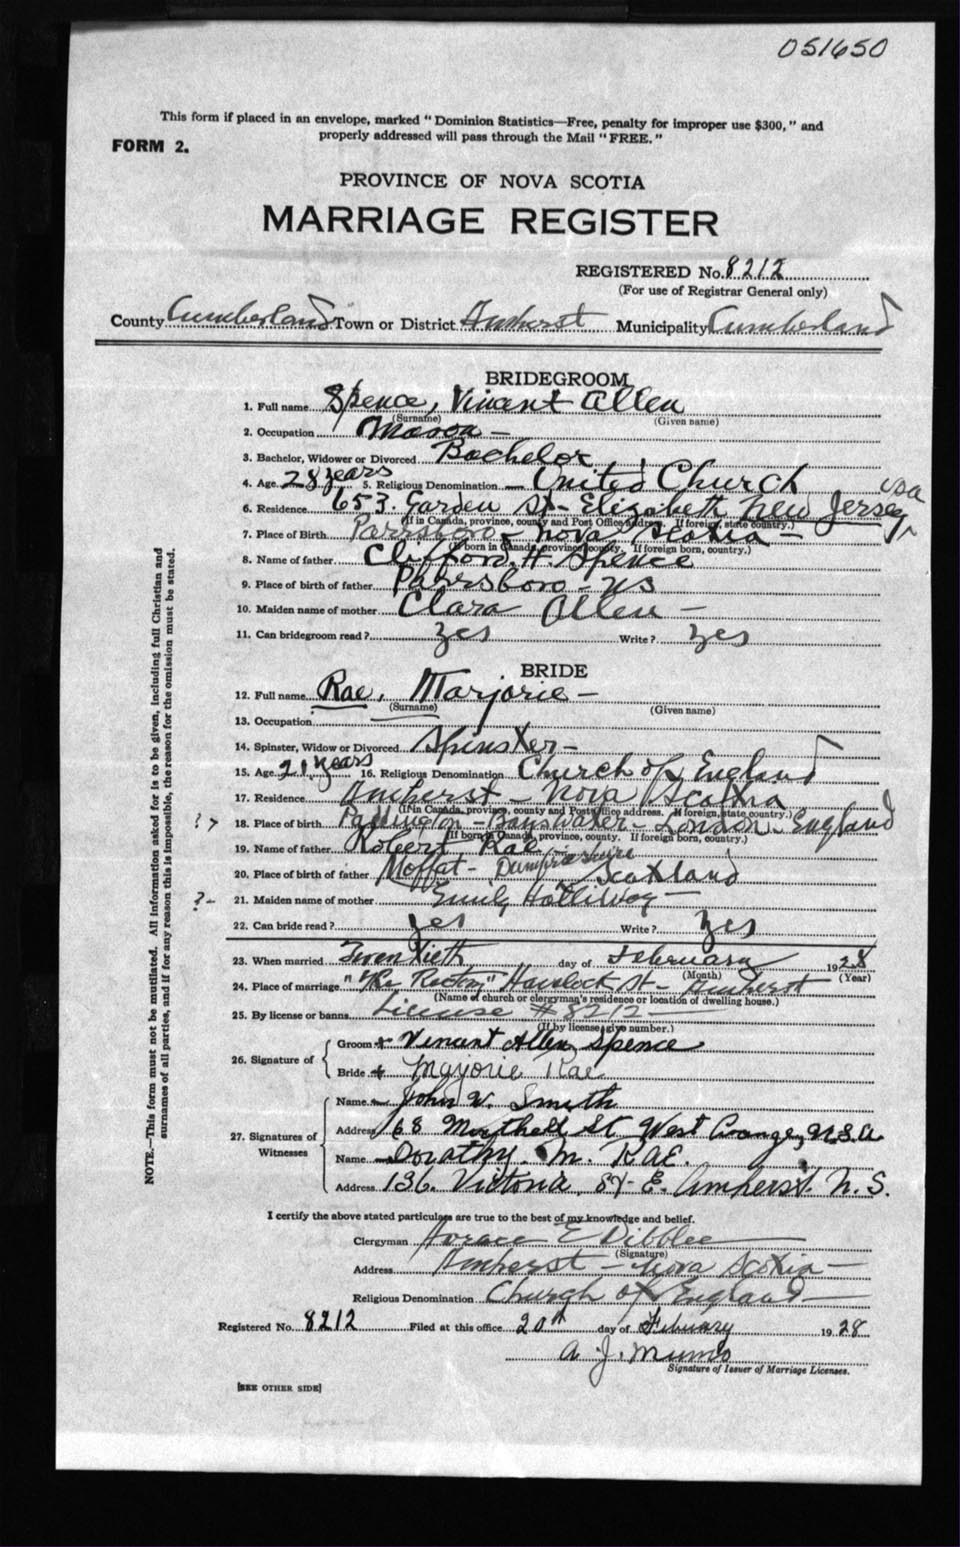 051650
This form if placed in an envelope, marked "Dominion Statistics—Free, penalty for improper use $300," and
properly addressed will pass through the Mail "FREE."
FORM 2.
PROVINCE OF NOVA SCOTIA
MARRIAGE REGISTER
REGISTERED No. 8212
(For use of Registrar General only)
County Cumberland Town or District Amherst Municipality Cumberland
BRIDEGROOM
1. Full name Spence, Vincent Allen
(Surname) (Given name)
2. Occupation Mason -
3. Bachelor, Widower or Divorced Bachelor
4. Age 28 years 5. Religious Denomination - United Church
6. Residence 653. Garden St- Elizabeth New Jersey USA
(If in Canada, province, county and Post Office address. If foreign, state country.)
7. Place of Birth Parrsboro - Nova Scotia -
(If born in Canada, province, county. If foreign born, country.)
8. Name of father Clifford. H. Spence
9. Place of birth of father Parrsboro - NS
10. Maiden name of mother Clara Allen -
11. Can bridegroom read? yes Write? yes
BRIDE
12. Full name Rae, Marjorie -
(Surname) (Given name)
13. Occupation
14. Spinster, Widow or Divorced Spinster -
15. Age 21 years 16. Religious Denomination Church of England
17. Residence Amherst - Nova Scotia
(If in Canada, province, county and Post Office address. If foreign, state country.)
? > 18. Place of birth Paddington - Bayswater - London. England
(If born in Canada, province, county. If foreign born, country.)
19. Name of father Robert Rae
20. Place of birth of father Moffat - Dumfriesshire Scotland
?- 21. Maiden name of mother Emily
22. Can bride read? yes Write? yes
23. When married Twentieth day of February 1928
(Month) (Year)
24. Place of marriage "The Rectory" Havelock St - Amherst
(Name of church or clergyman's residence or location of dwelling house.)
25. By license or banns License #8212 -
(If by license, give number.)
26. Signature of
Groom Vincent Allen Spence
Bride Marjorie Rae
27. Signatures of Witnesses
Name John W. Smith
Address 68 St West Orange, U.S.A
Name Dorothy. M. RAE.
Address 136. Victoria. St- E. Amherst. N. S.
I certify the above stated particulars are true to the best of my knowledge and belief.
Clergyman Horace E Dibblee
(Signature)
Address Amherst - Nova Scotia -
Religious Denomination Church of England
Registered No. 8212 Filed at this office 20th day of February 1928
A. J. Munro
Signature of Issuer of Marriage Licenses.
[SEE OTHER SIDE]
NOTE.—This form must not be mutilated. All information asked for is to be given, including full Christian and
surnames of all parties, and if for any reason this is impossible, the reason for the omission must be stated.